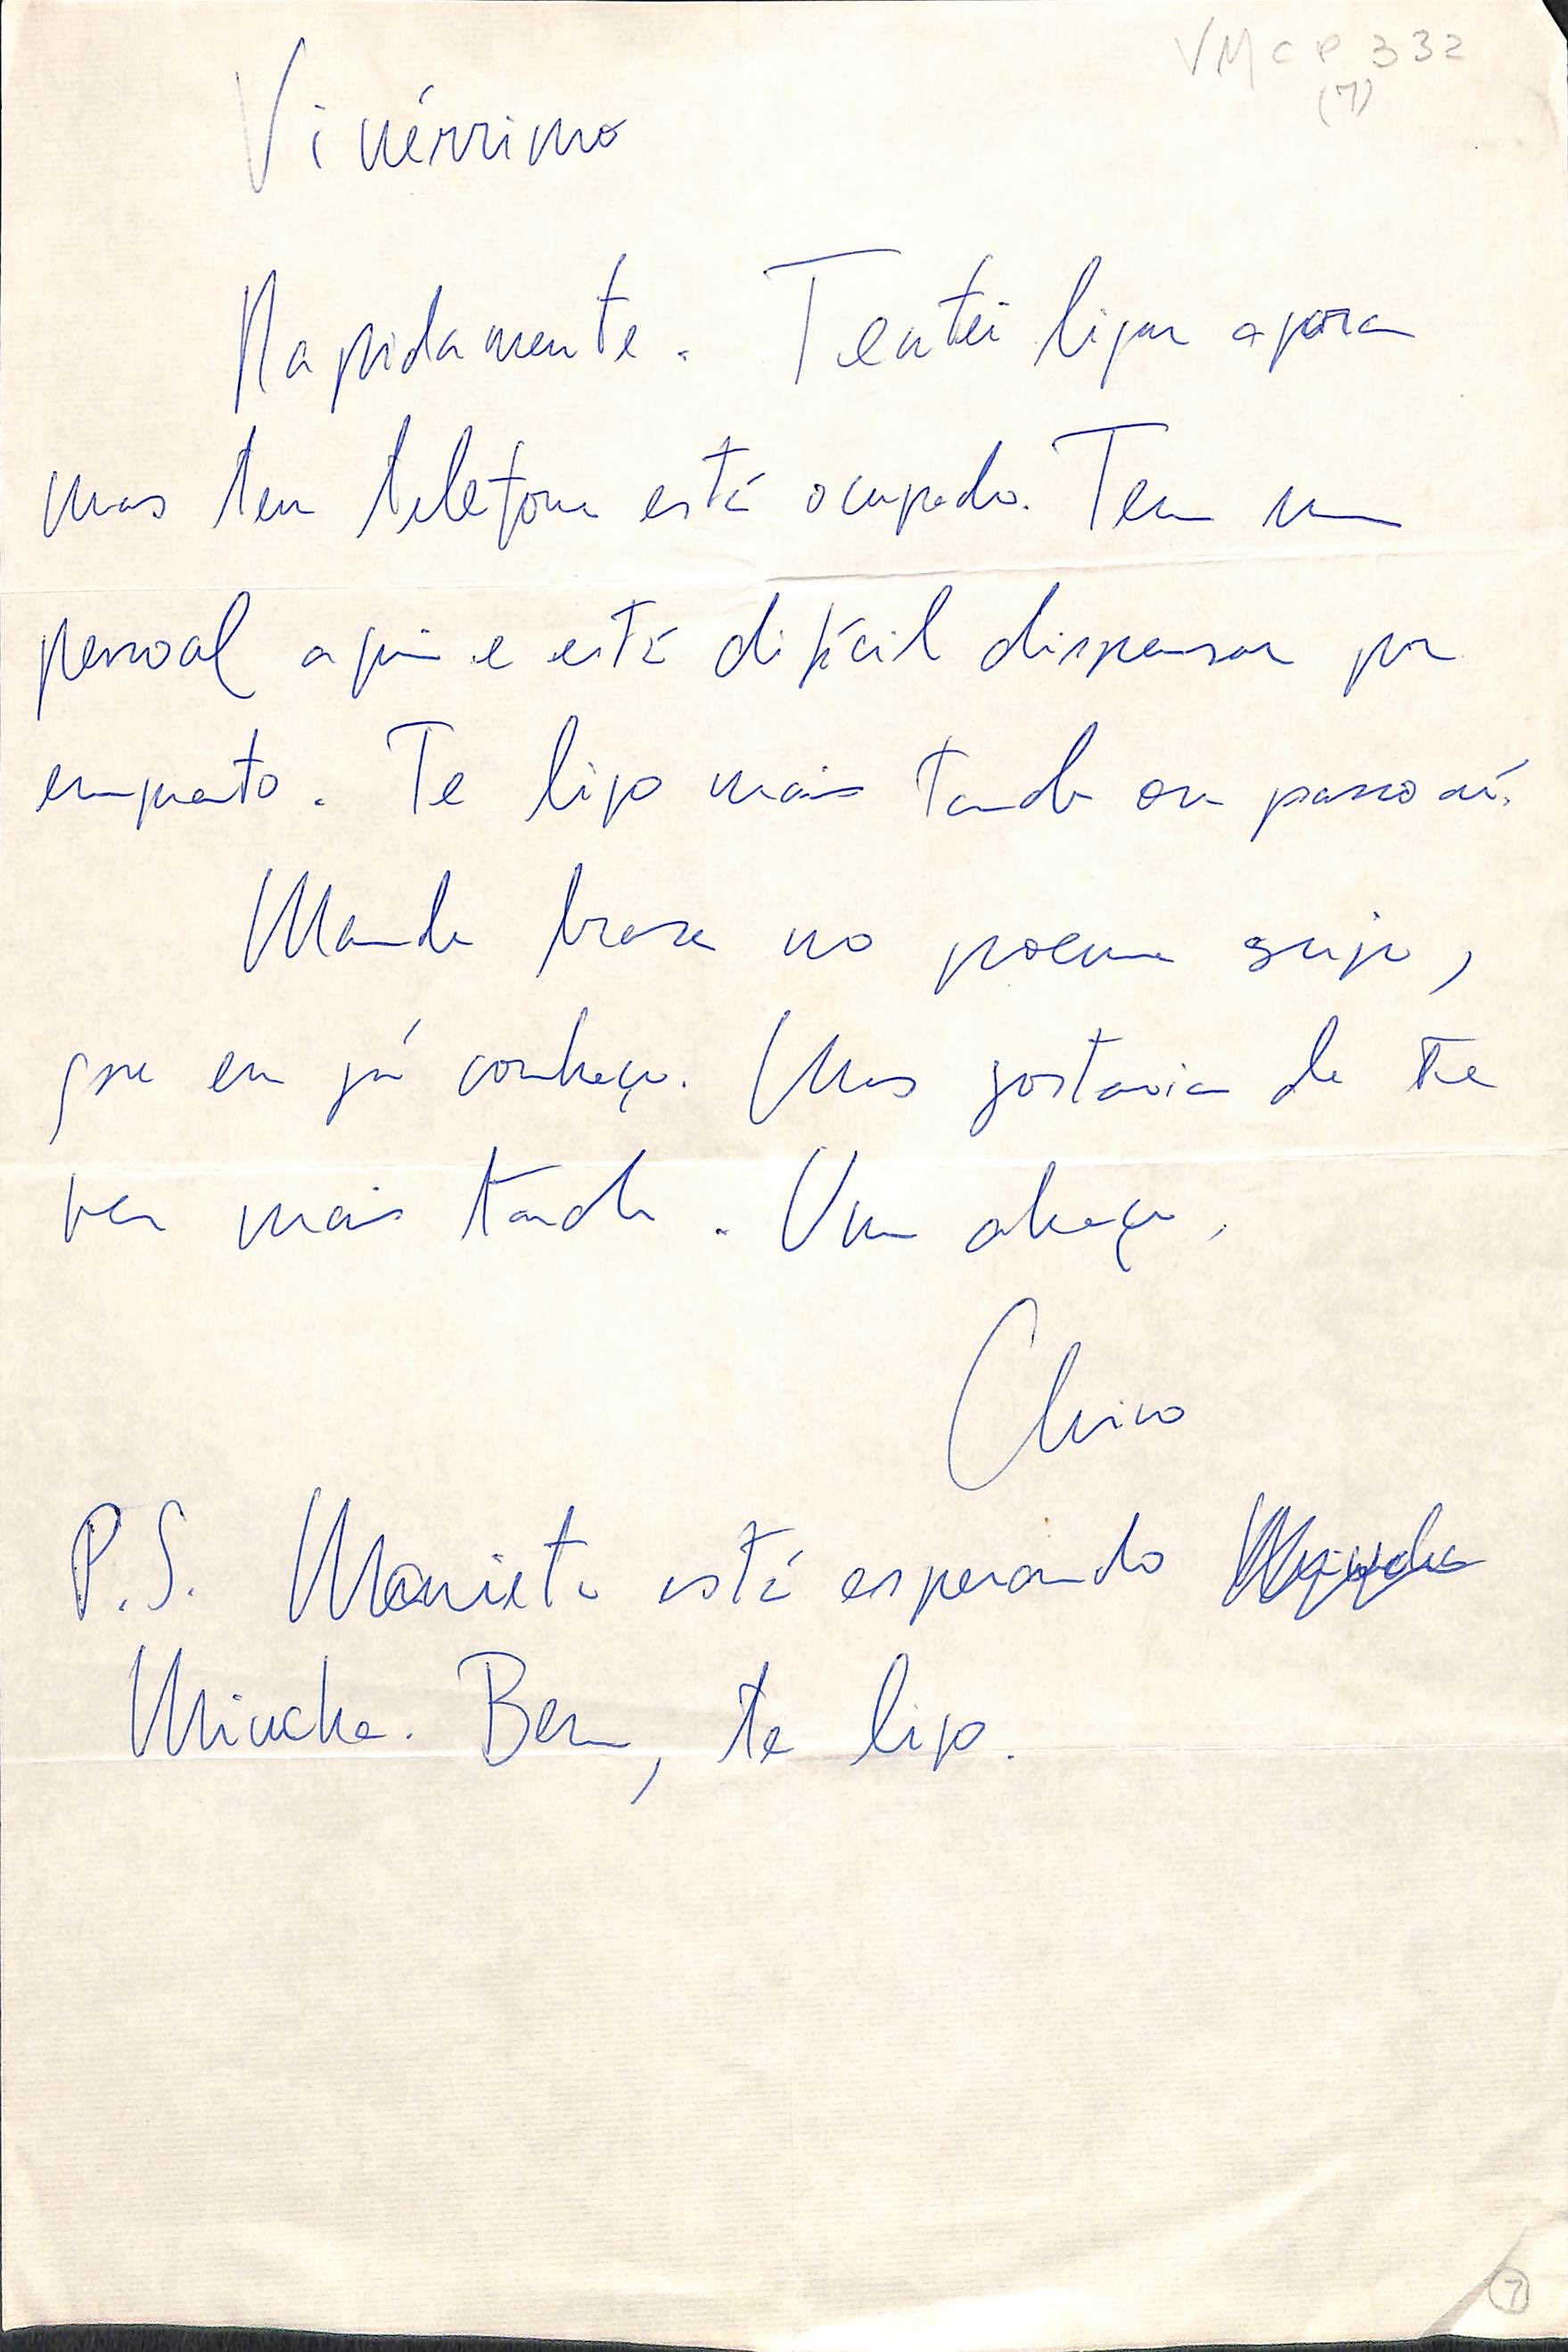 VMCP 332
(7)
Vinérrimo
Rapidamente. Tentei ligar agora
mas teu telefone está ocupado. Tem um
pessoal aqui e está difícil dispensar por
enquanto. Te ligo mais tarde ou passo aí.
Manda brasa no poema sujo,
que eu já conheço. Mas gostaria de te
ver mais tarde. Um abraço,
Chico
P.S. Marieta está esperando
Miucha. Bem, te ligo.
7